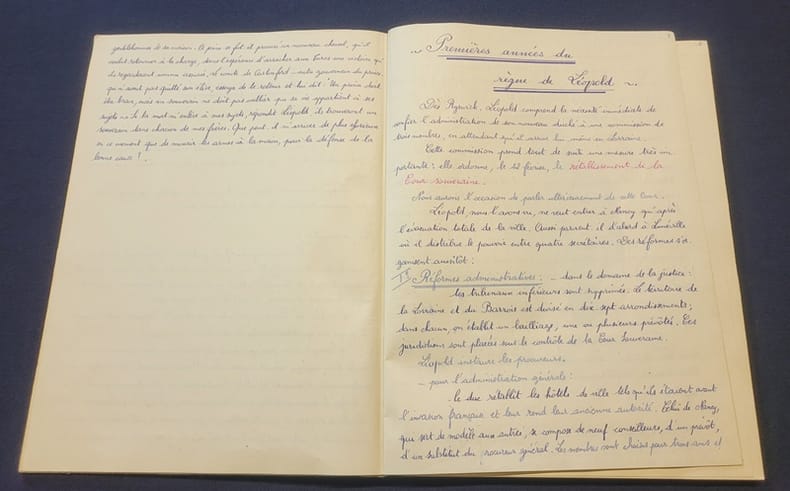 gentilshommes de sa maison. A peine se fut il procuré un nouveau cheval, qu'il
voulut retourner à la charge, dans l'espérance d'arracher aux Turcs une victoire qu'
ils regardaient comme assurée, et comte de
qui n'avait pas quitté son élève, essaya de le retenir et lui dit: "Un prince doit
être brave, mais un souverain ne doit pas oublier que sa vie appartient à ses
sujets
souverain dans chacun de mes frères. Que peut il m'arriver de plus glorieux
en ce moment que de mourir les armes à la main, pour la défense de la
bonne cause!
~ Premières années du
règne de Léopold ~.
Dès Ryswick, Léopold comprend la nécessité immédiate de
confier l'administration de son nouveau duché à une commission de
trois membres, en attendant qu'il arrive lui même en Lorraine.
Cette commission prend tout de suite une mesure très im
portante: elle ordonne, le 12 février, le rétablissement de la
Cour souveraine.
Nous aurons l'occasion de parler ultérieurement de cette Cour.
Léopold, nous l'avons vu, ne veut entrer à Nancy qu'après
l'évacuation totale de la ville. Aussi parvient il d'abord à Lunéville
où il distribue le pouvoir entre quatre secrétaires. Des réformes s'or
ganisent aussitôt:
I° Réformes administratives: - dans le domaine de la justice:
les tribunaux inférieurs sont supprimés. Le territoire de
la Lorraine et du Barrois est divisé en dix sept arrondissements;
dans chacun, on établit un bailliage, une ou plusieurs prévôtés. Ces
juridictions sont placées sous le contrôle de la Cour Souveraine.
Léopold institue les procureurs.
- pour l'administration générale:
- le duc rétablit les hôtels de ville tels qu'ils étaient avant
l'invasion française et leur rend leur ancienne autorité. Celui de Nancy,
qui sert de modèle aux autres, se compose de neuf conseillers, d'un prévôt,
d'un substitut du procureur général. Les membres sont choisis pour trois ans et